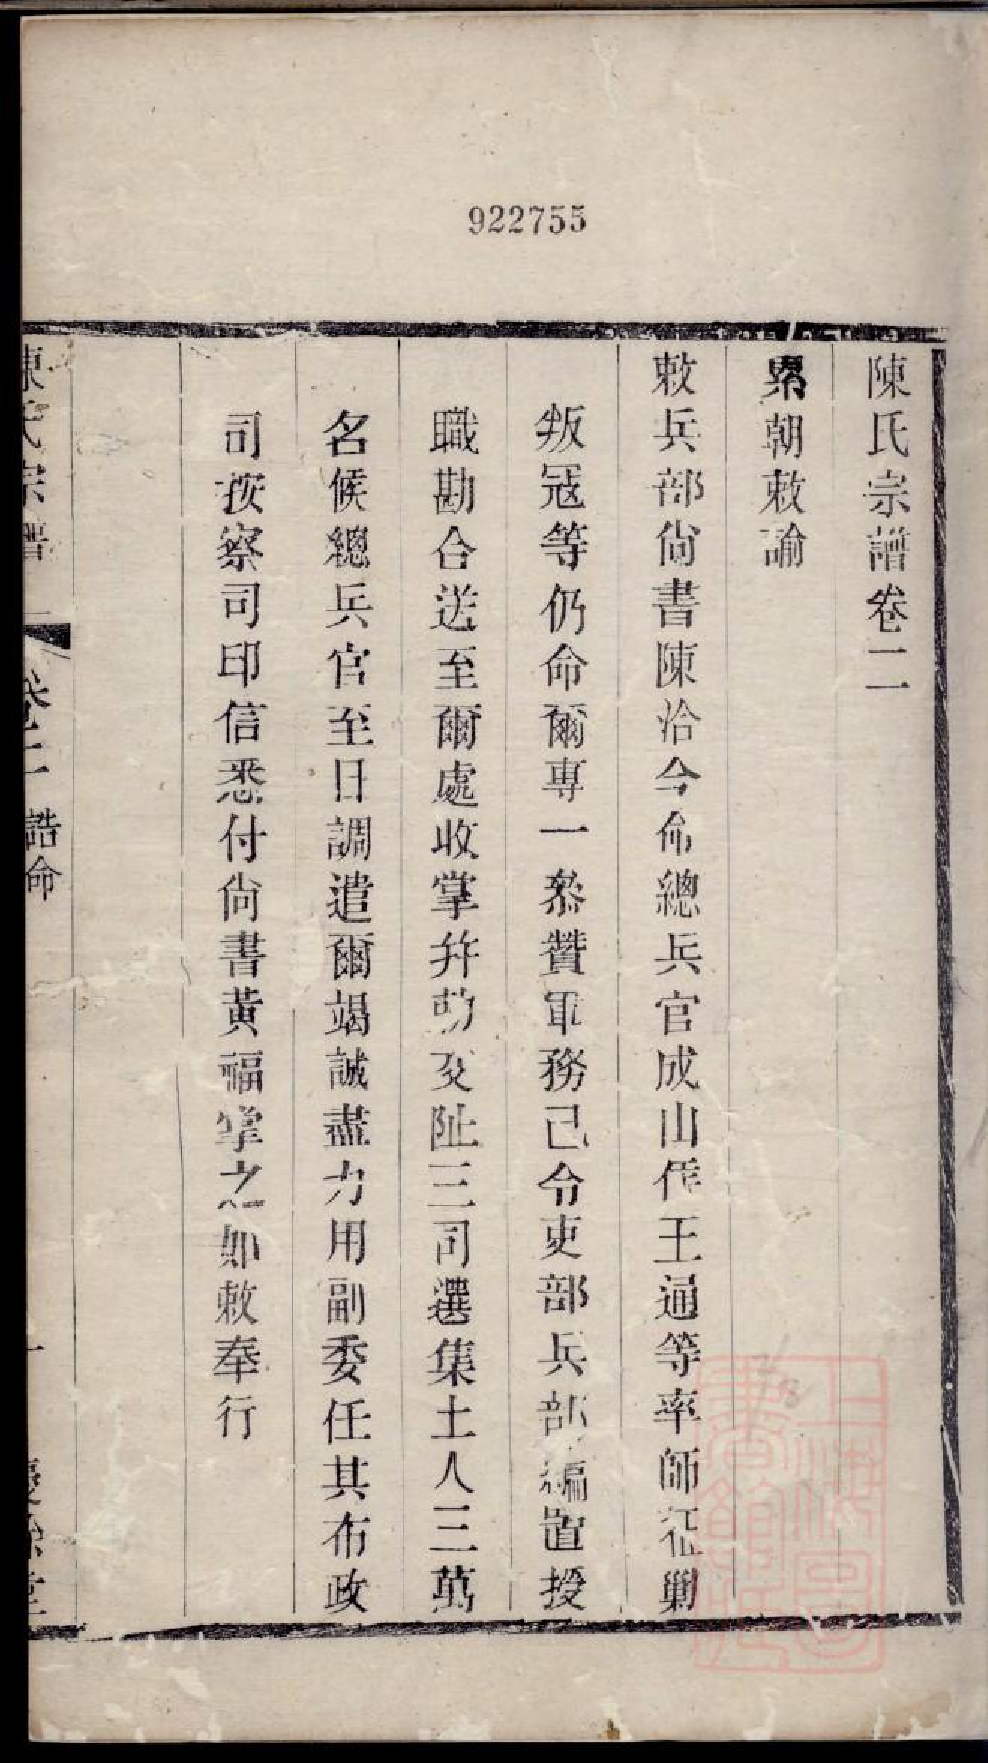 922755
陳氏宗譜卷二
累朝敕諭
敕兵部尙書陳洽今命總兵官成山侯王通等率師征勦
叛冦等仍命爾專一叅贊軍務已令吏部兵部編置授
職勘合送至爾處收掌幷勑交阯三司選集土人三萬
名候總兵官至日調遣爾竭誠盡力用副委任其布政
司按察司印信悉付尙書黃福掌之如敕奉行
陳氏宗譜
卷二 誥命
一